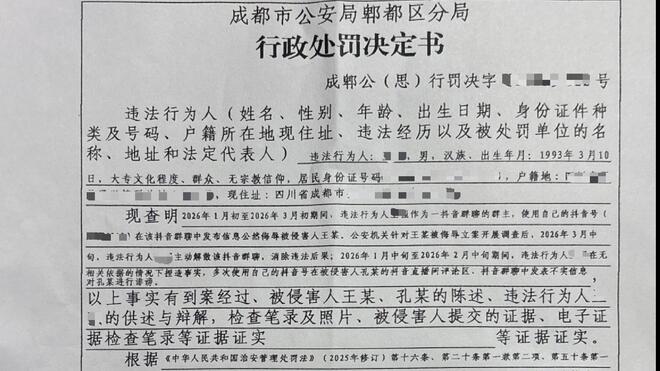 成都市公安局郫都区分局
行政处罚决定书
成郫公(思)行罚决字 号
违法行为人(姓名、性别、年龄、出生日期、身份证件种
类及号码、户籍所在地现住址、违法经历以及被处罚单位的名
称、地址和法定代表人) 违法行为人: ,男,汉族、出生年月:1993年3月10
日,大专文化程度、群众、无宗教信仰,居民身份证号码 ,户籍地:
,现住址:四川省成都市
现查明2026年1月初至2026年3月初期间,违法行为人 作为一抖音群聊的群主,使用自己的抖音号
( 在该抖音群聊中发布信息公然侮辱被侵害人王某。公安机关针对王某被侮辱文案开展调查后,2026年3月中
旬,违法行为人 主动解散该抖音群聊,消除违法后果;2026年1月中旬至2026年2月中旬期间,违法行为人 在无
相关依据的情况下捏造事实,多次使用自己的抖音号在被侵害人孔某的抖音直播间评论区、抖音群聊中发表不实信息
对孔某进行诽谤,
以上事实有到案经过、被侵害人王某、孔某的陈述、违法行为人
的供述与辩解,检查笔录及照片、被侵害人提交的证据、电子证
据检查笔录等证据证实 等证据证实。
根据《中华人民共和国治安管理处罚法》(2025年修订)第十六条、第二十条第一款第二项、第五十条第一